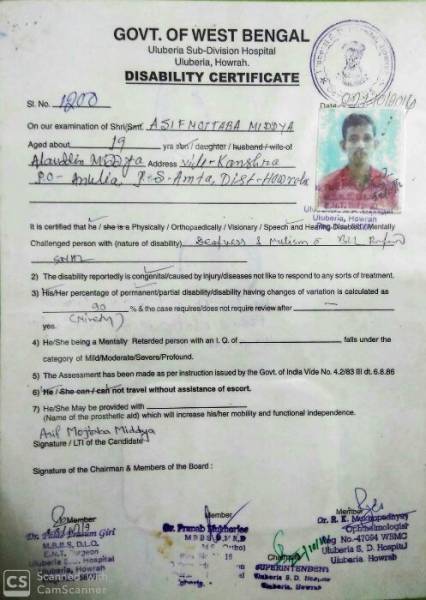 GOVT. OF WEST BENGAL
Uluberia Sub-Division Hospital
Uluberia, Howrah.
DISABILITY CERTIFICATE
Sl. No. 1200
Date
On our examination of Shri/Smt. ASIF MOJTABA MIDDYA
Aged about 19 yrs son / daughter / husband / wife of
Alauddin Middya Address Vill- Kanshra
P.O- Anulia, P.S- Amta, Dist- Howrah
Uluberia, Howrah
It is certified that he / she is a Physically / Orthopaedically / Visionary / Speech and Hearing Disabled / Mentally
Challenged person with (nature of disability) Deafness & Mutism
SNHL
2) The disability reportedly is congenital/caused by injury/diseases not like to respond to any sorts of treatment.
3) His/Her percentage of permanent/partial disability/disability having changes of variation is calculated as
90 % & the case requires/does not require review after
(Ninety) yes.
4) He/She being a Mentally Retarded person with an I. Q. of falls under the
category of Mild/Moderate/Severe/Profound.
5) The Assessment has been made as per instruction issued by the Govt. of India Vide No. 4.2/83 III dt. 6.8.86
6) He / She can / can not travel without assistance of escort.
7) He/She May be provided with
(Name of the prosthetic aid) which will increase his/her mobility and functional independence.
Asif Mojtaba Middya
Signature / LTI of the Candidate
Signature of the Chairman & Members of the Board :
Member
Member
Member
Dr. Giri
M.B.B.S, D.L.O.
E.N.T. Surgeon
Uluberia S.D. Hospital
Uluberia, Howrah
Dr. Pranab Mukherjee
Chairman
SUPERINTENDENT
Uluberia S. D. Hospital
Uluberia, Howrah
Dr. R. K. Mukhopadhyay
Ophthalmologist
Reg No.-47094 WBMC
Uluberia S. D. Hospital
Uluberia, Howrah
CS Scanned with
CamScanner